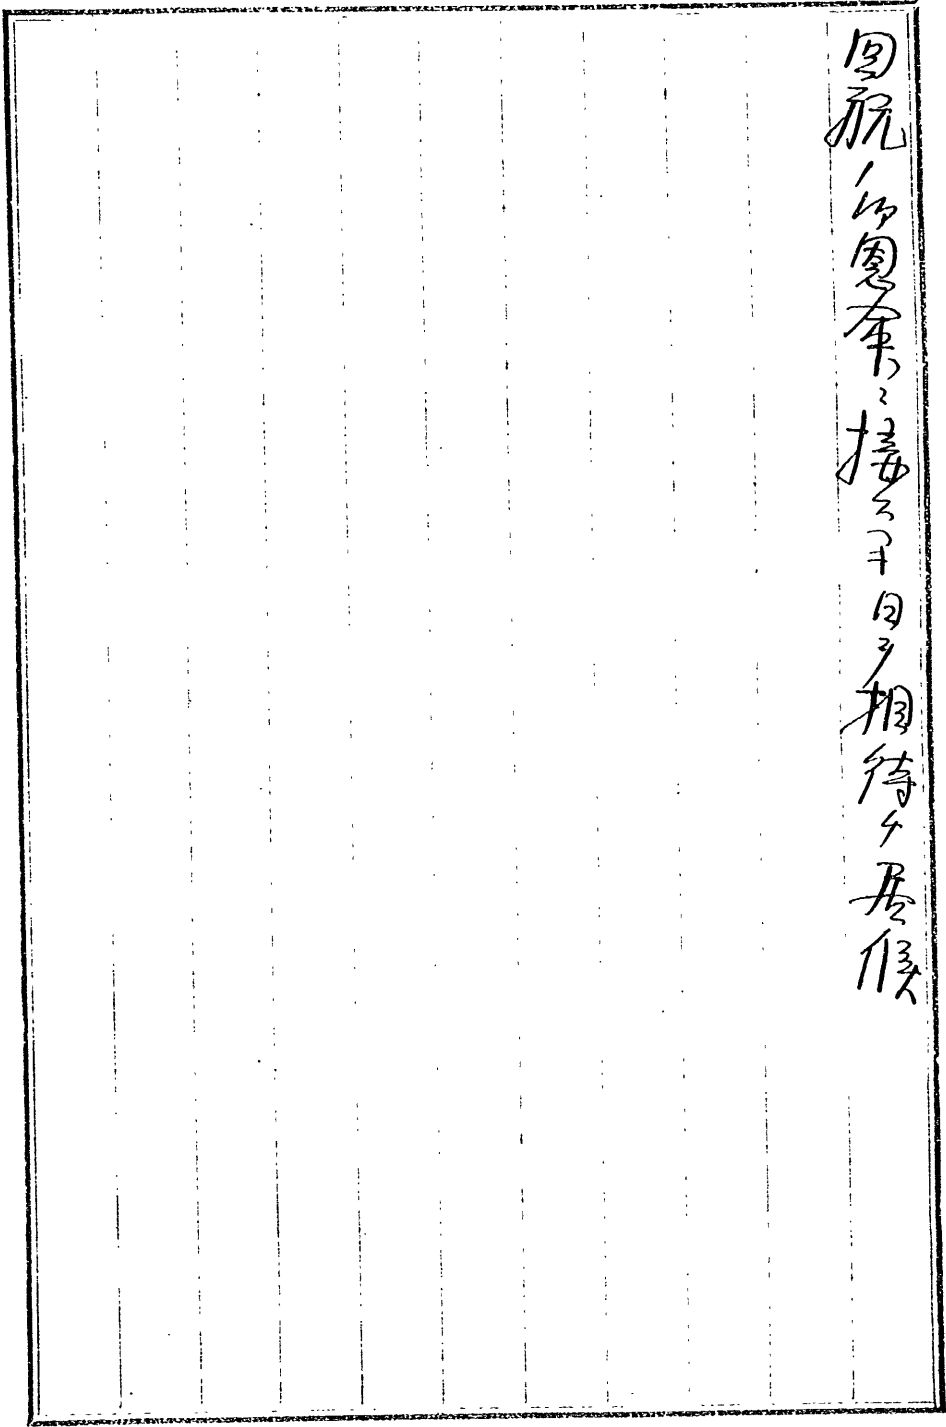 回航ノ御恩命ニ接スル日ヲ相待チ居候